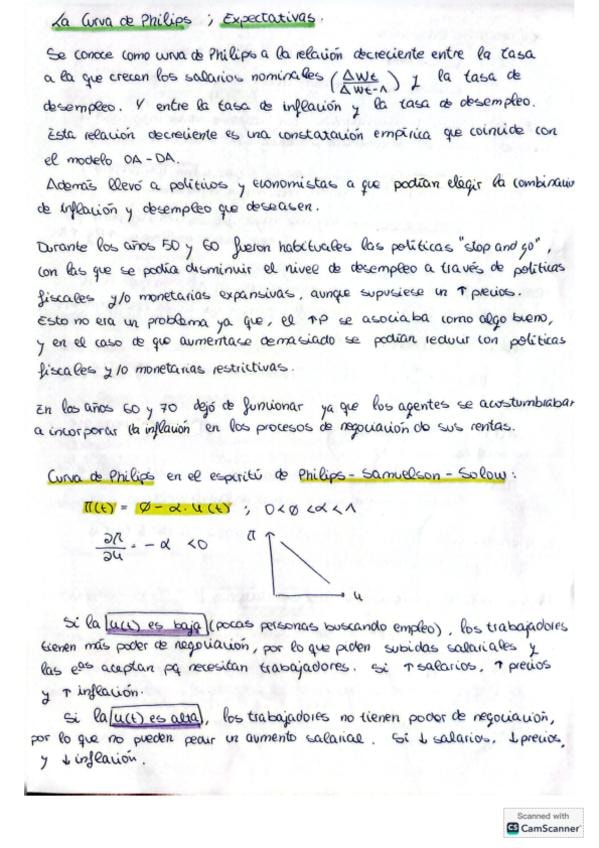 La Curva de Philips ; Expectativas.
Se conoce como curva de Philips a la relación decreciente entre la tasa
a la que crecen los salarios nominales (ΔWt / ΔWt-1) y la tasa de
desempleo. Y entre la tasa de inflación y la tasa de desempleo.
Esta relación decreciente es una constatación empírica que coincide con
el modelo OA-DA.
Además llevó a políticos y economistas a que podían elegir la combinació
de inflación y desempleo que deseasen.
Durante los años 50 y 60 fueron habituales las políticas "stop and go",
con las que se podía disminuir el nivel de desempleo a través de políticas
fiscales y/o monetarias expansivas, aunque supusiese un ↑ precios.
Esto no era un problema ya que, el ↑P se asociaba como algo bueno,
y en el caso de que aumentase demasiado se podían reducir con políticas
fiscales y/o monetarias restrictivas.
En los años 60 y 70 dejó de funcionar ya que los agentes se acostumbrabar
a incorporar la inflación en los procesos de negociación de sus rentas.
Curva de Philips en el espíritu de Philips-Samuelson-Solow:
π(t) = Ø - α. u(t) ; 0<Ø<α<1
∂π/∂u = -α <0
π
u
Si la u(t) es baja (pocas personas buscando empleo), los trabajadores
tienen más poder de negociación, por lo que piden subidas salariales y
las eas aceptan pq necesitan trabajadores. Si ↑ salarios, ↑ precios
y ↑ inflación.
Si la u(t) es alta, los trabajadores no tienen poder de negociación,
por lo que no pueden pedir un aumento salarial. Si ↓ salarios, ↓ precios,
y ↓ inflación.
Scanned with
CS CamScanner